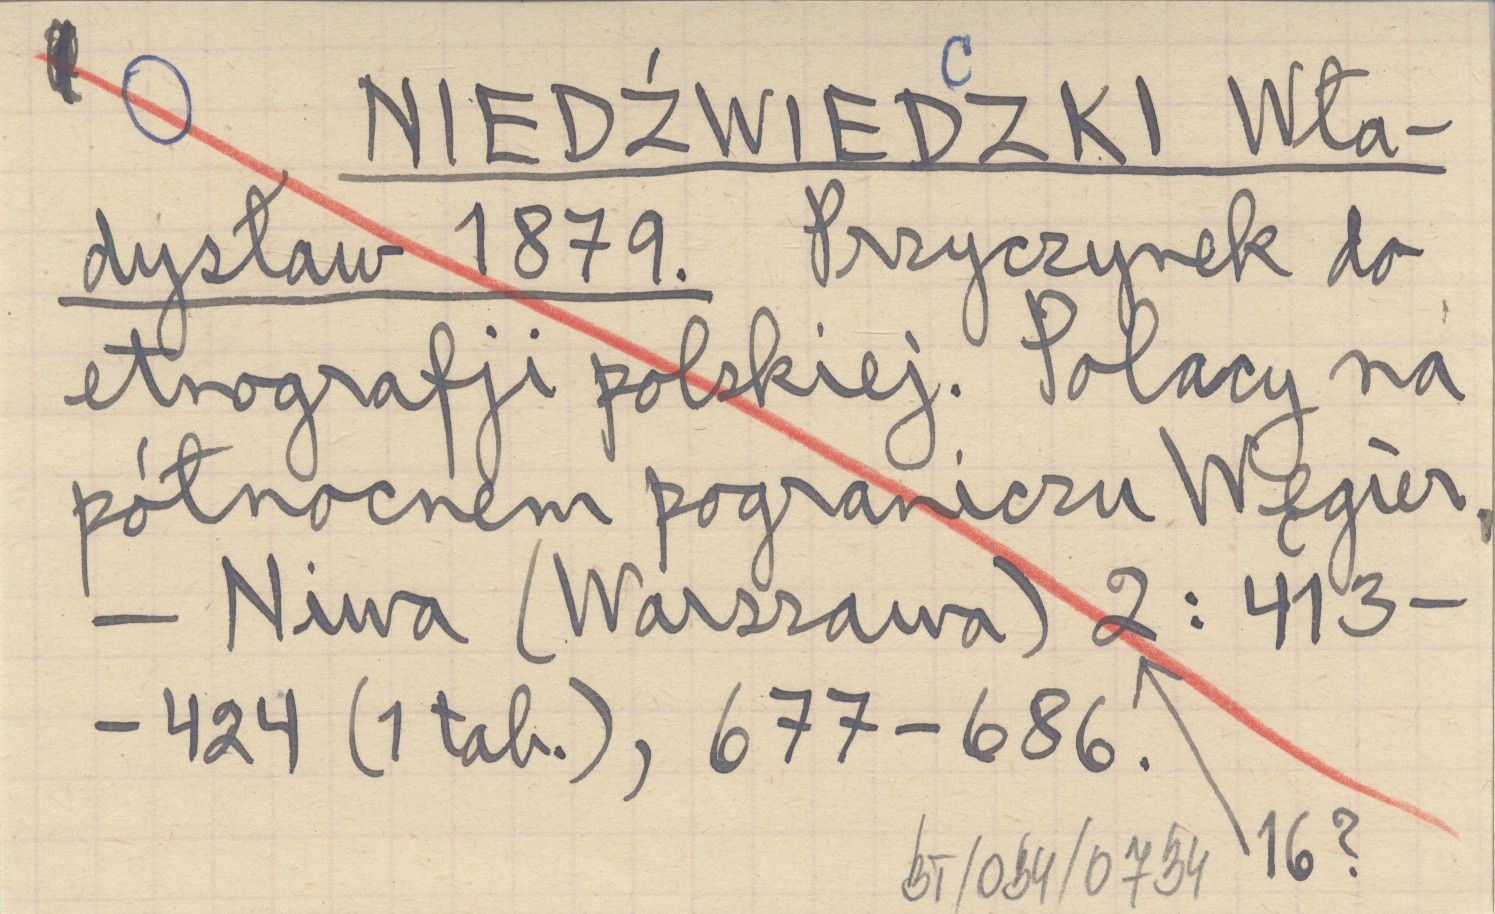 C
NIEDŹWIEDZKI Wła-
dysław 1879. Przyczynek do
etnografji polskiej. Polacy na
północnem pograniczu Węgier.
— Niwa (Warszawa) 2: 413-
-424 (1 tab.), 677-686.
16?
BT/034/0734